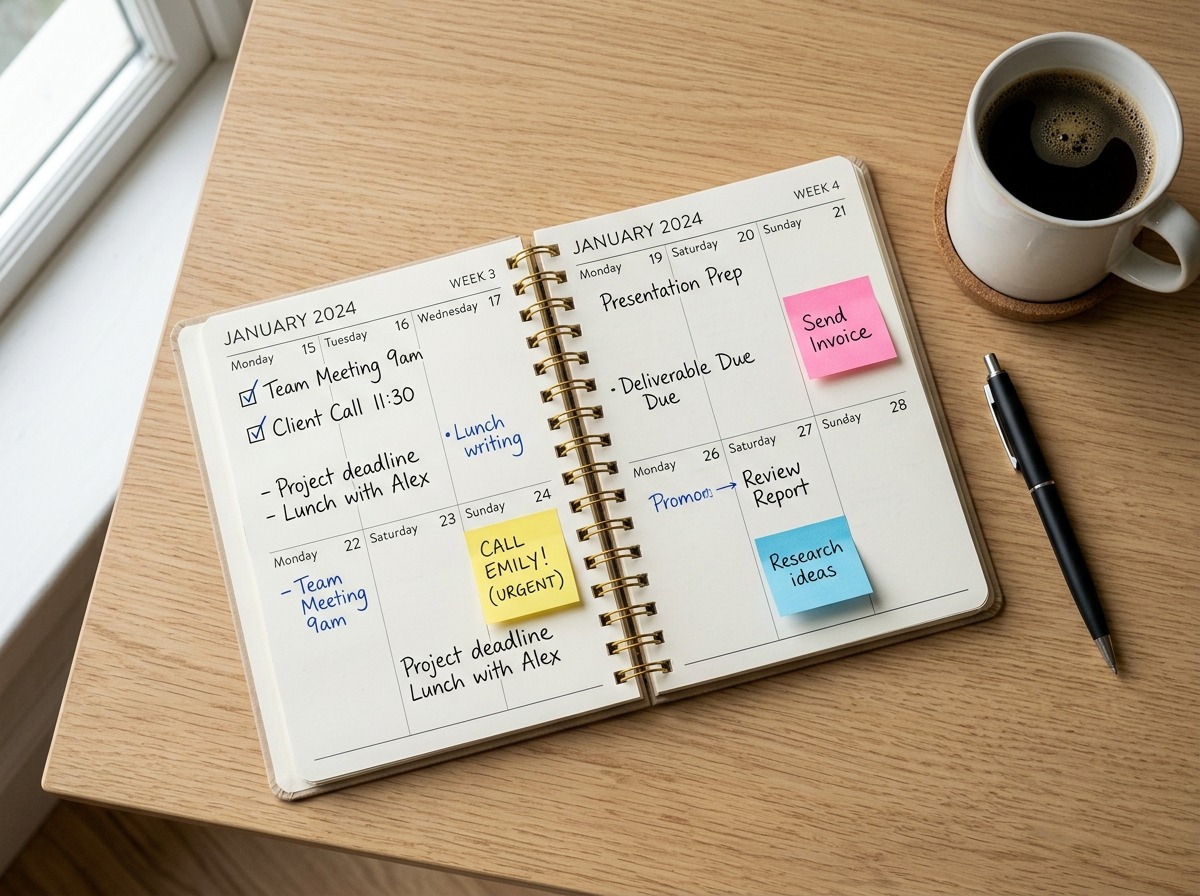 JANUARY 2024 WEEK 3
Monday 15 Tuesday 16 Wednesday 17
Team Meeting 9am
Client Call 11:30
- Project deadline
- Lunch with Alex
• Lunch
writing
Monday 22 Saturday 23 Sunday 24
- Team
Meeting
9am
CALL
EMILY!
(URGENT)
Project deadline
Lunch with Alex
JANUARY 2024 WEEK 4
Monday 19 Saturday 20 Sunday 21
Presentation Prep
Send
Invoice
• Deliverable Due
Due
Monday 26 Saturday 27 Sunday 28
→ Review
Report
Research
ideas